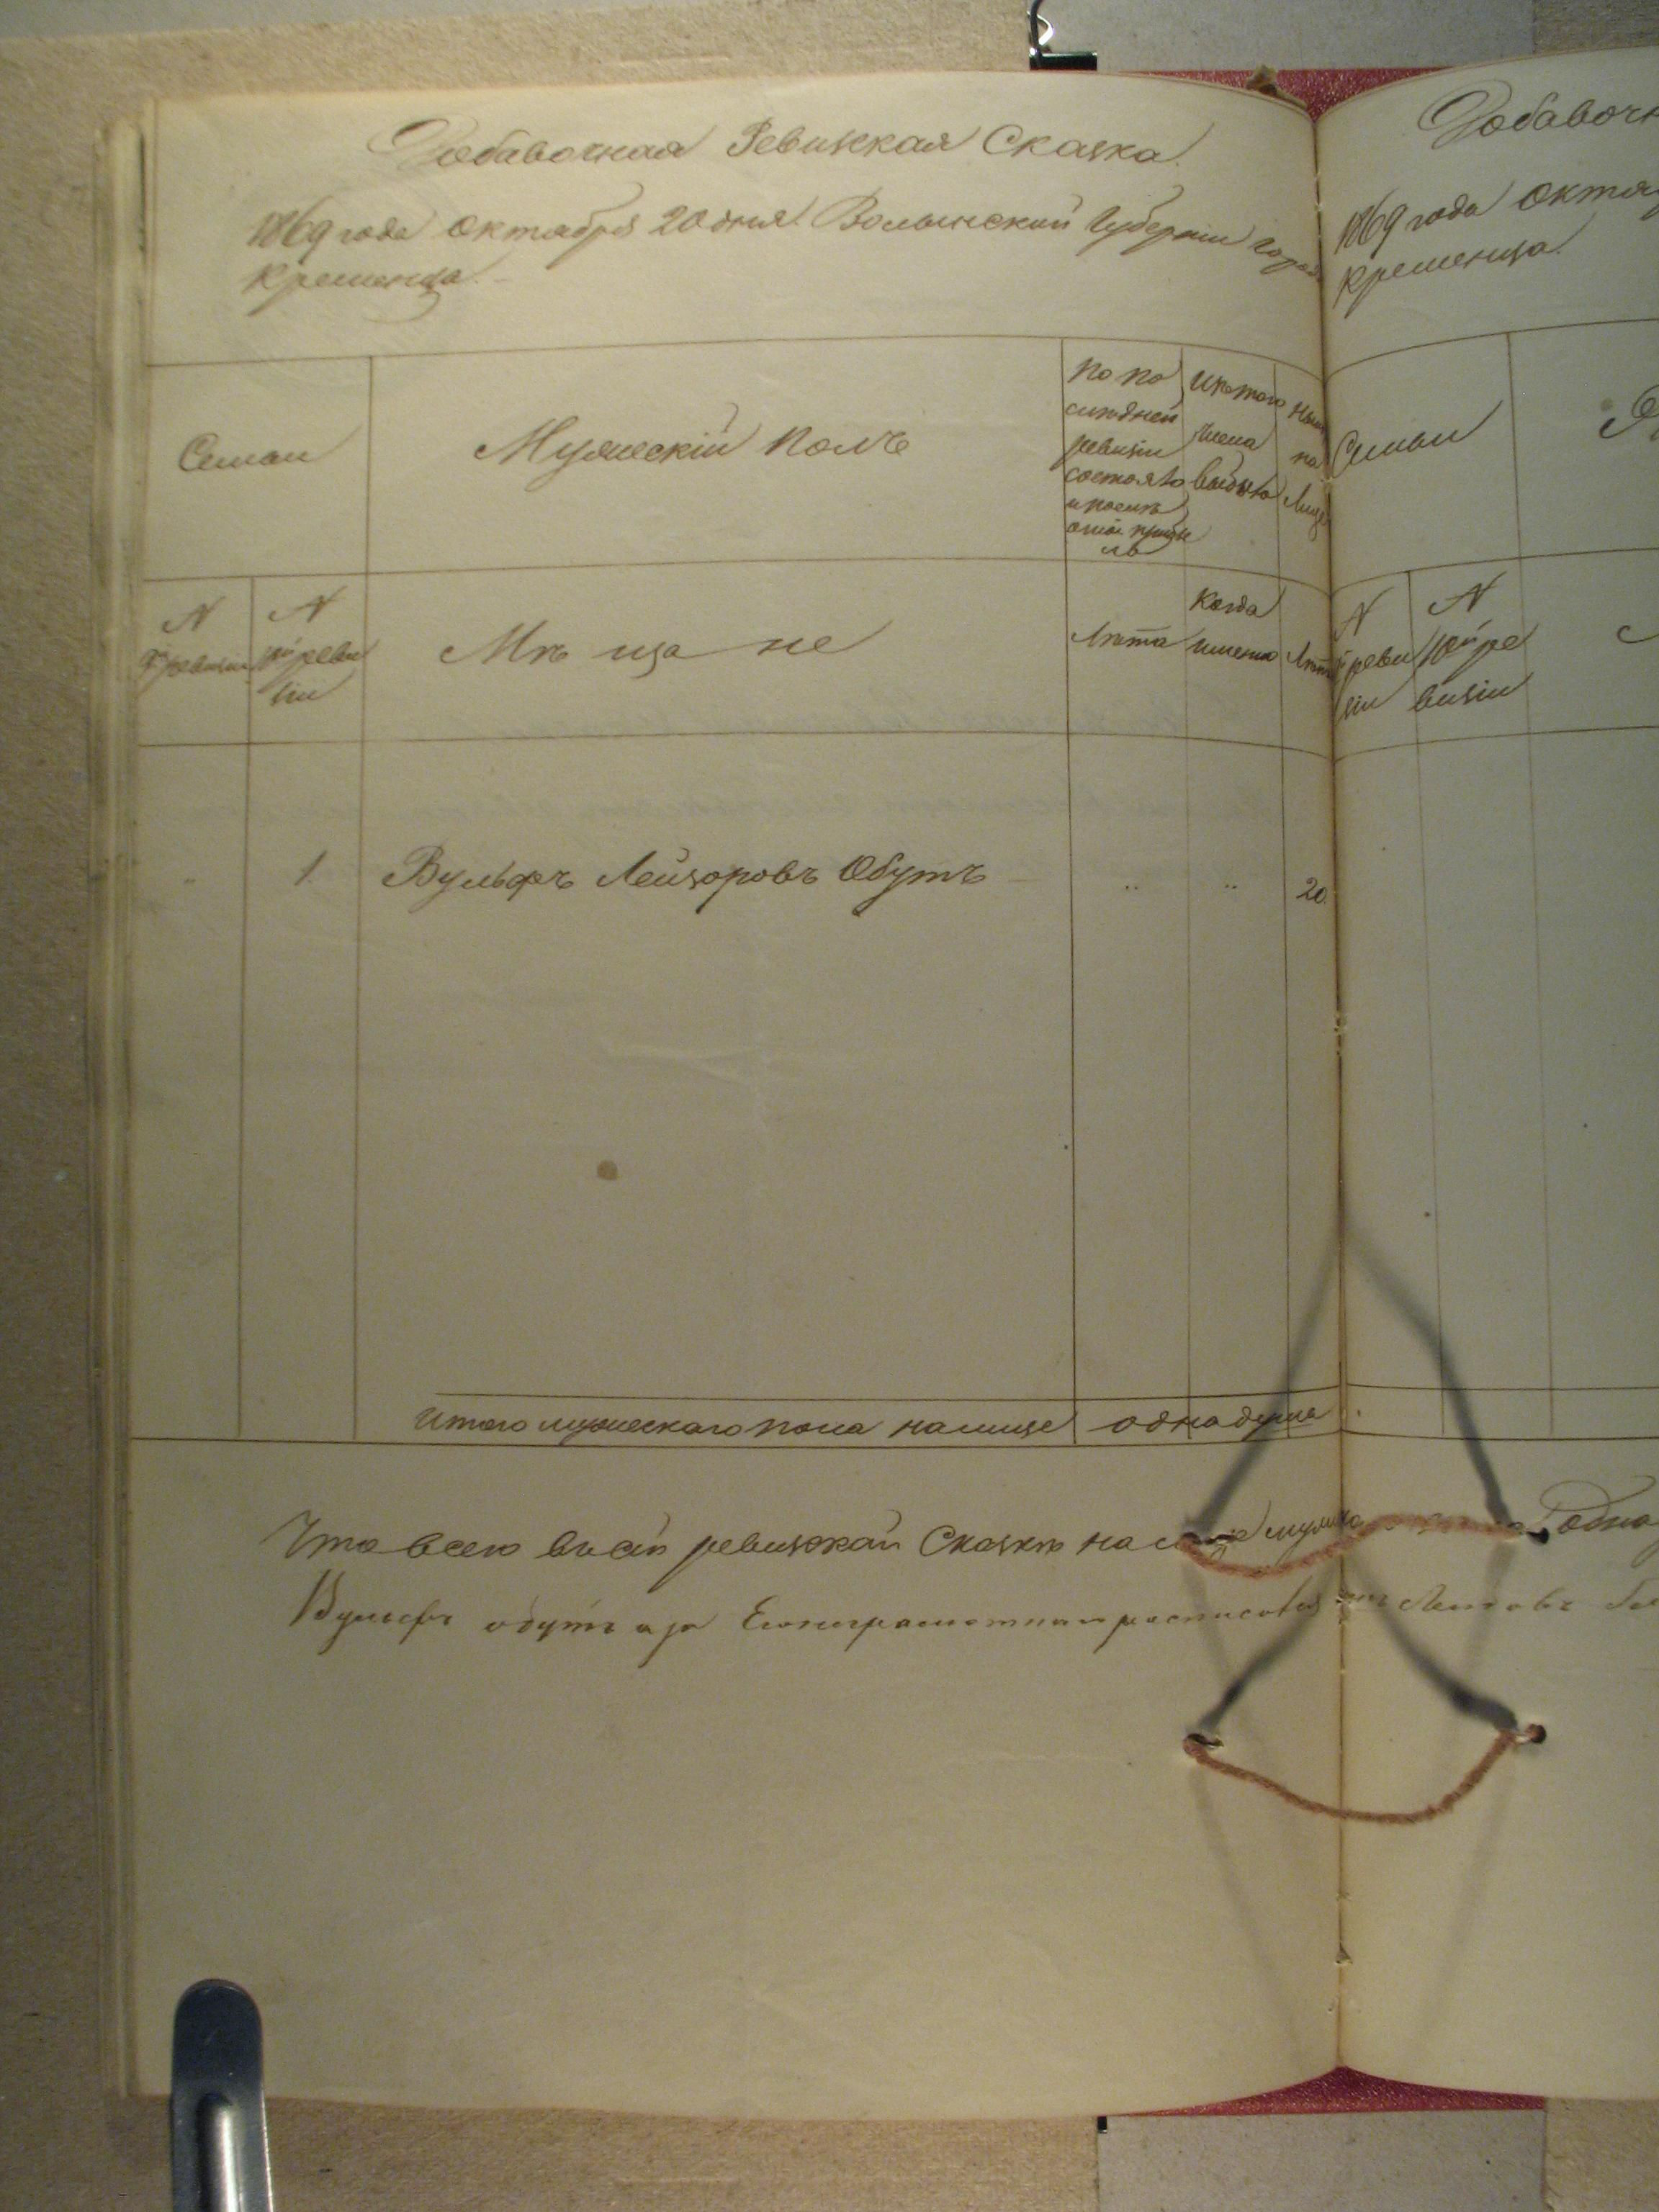 Добавочная Ревизская Сказка.
1869 года Октября 20 дня. Волынской Губернии города
Кременца.
Семьи
Мужескій Полъ
По по
слѣдней
ревизіи
состояло
и послѣ
оной прибы
ло
Изъ того
числа
выбыло
Нынѣ
на
Лицо
N
9й ревизіи
N
10й реви
зіи
Мѣщане
Лѣта
Когда
именно
Лѣта
1
Вульфъ Лейзоровъ Обутъ
20
Итого мужескаго пола на лице одна душа
Что всего въ сей ревизской Сказкѣ на
Вульфъ Обутъ а за Его неграмотнаго росписався
Добавочн
1869 года Октя
Кременца.
Семьи
N
реви
зіи
N
10й ре
визіи
одна